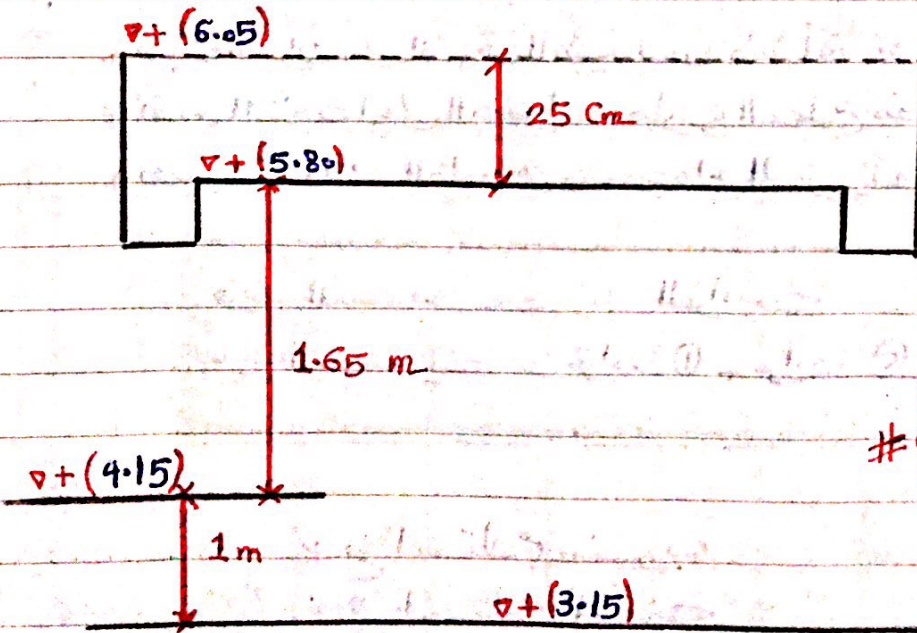 ▽+ (6.05)
25 Cm
▽+ (5.80)
1.65 m
#
▽+ (4.15)
1m
▽+ (3.15)